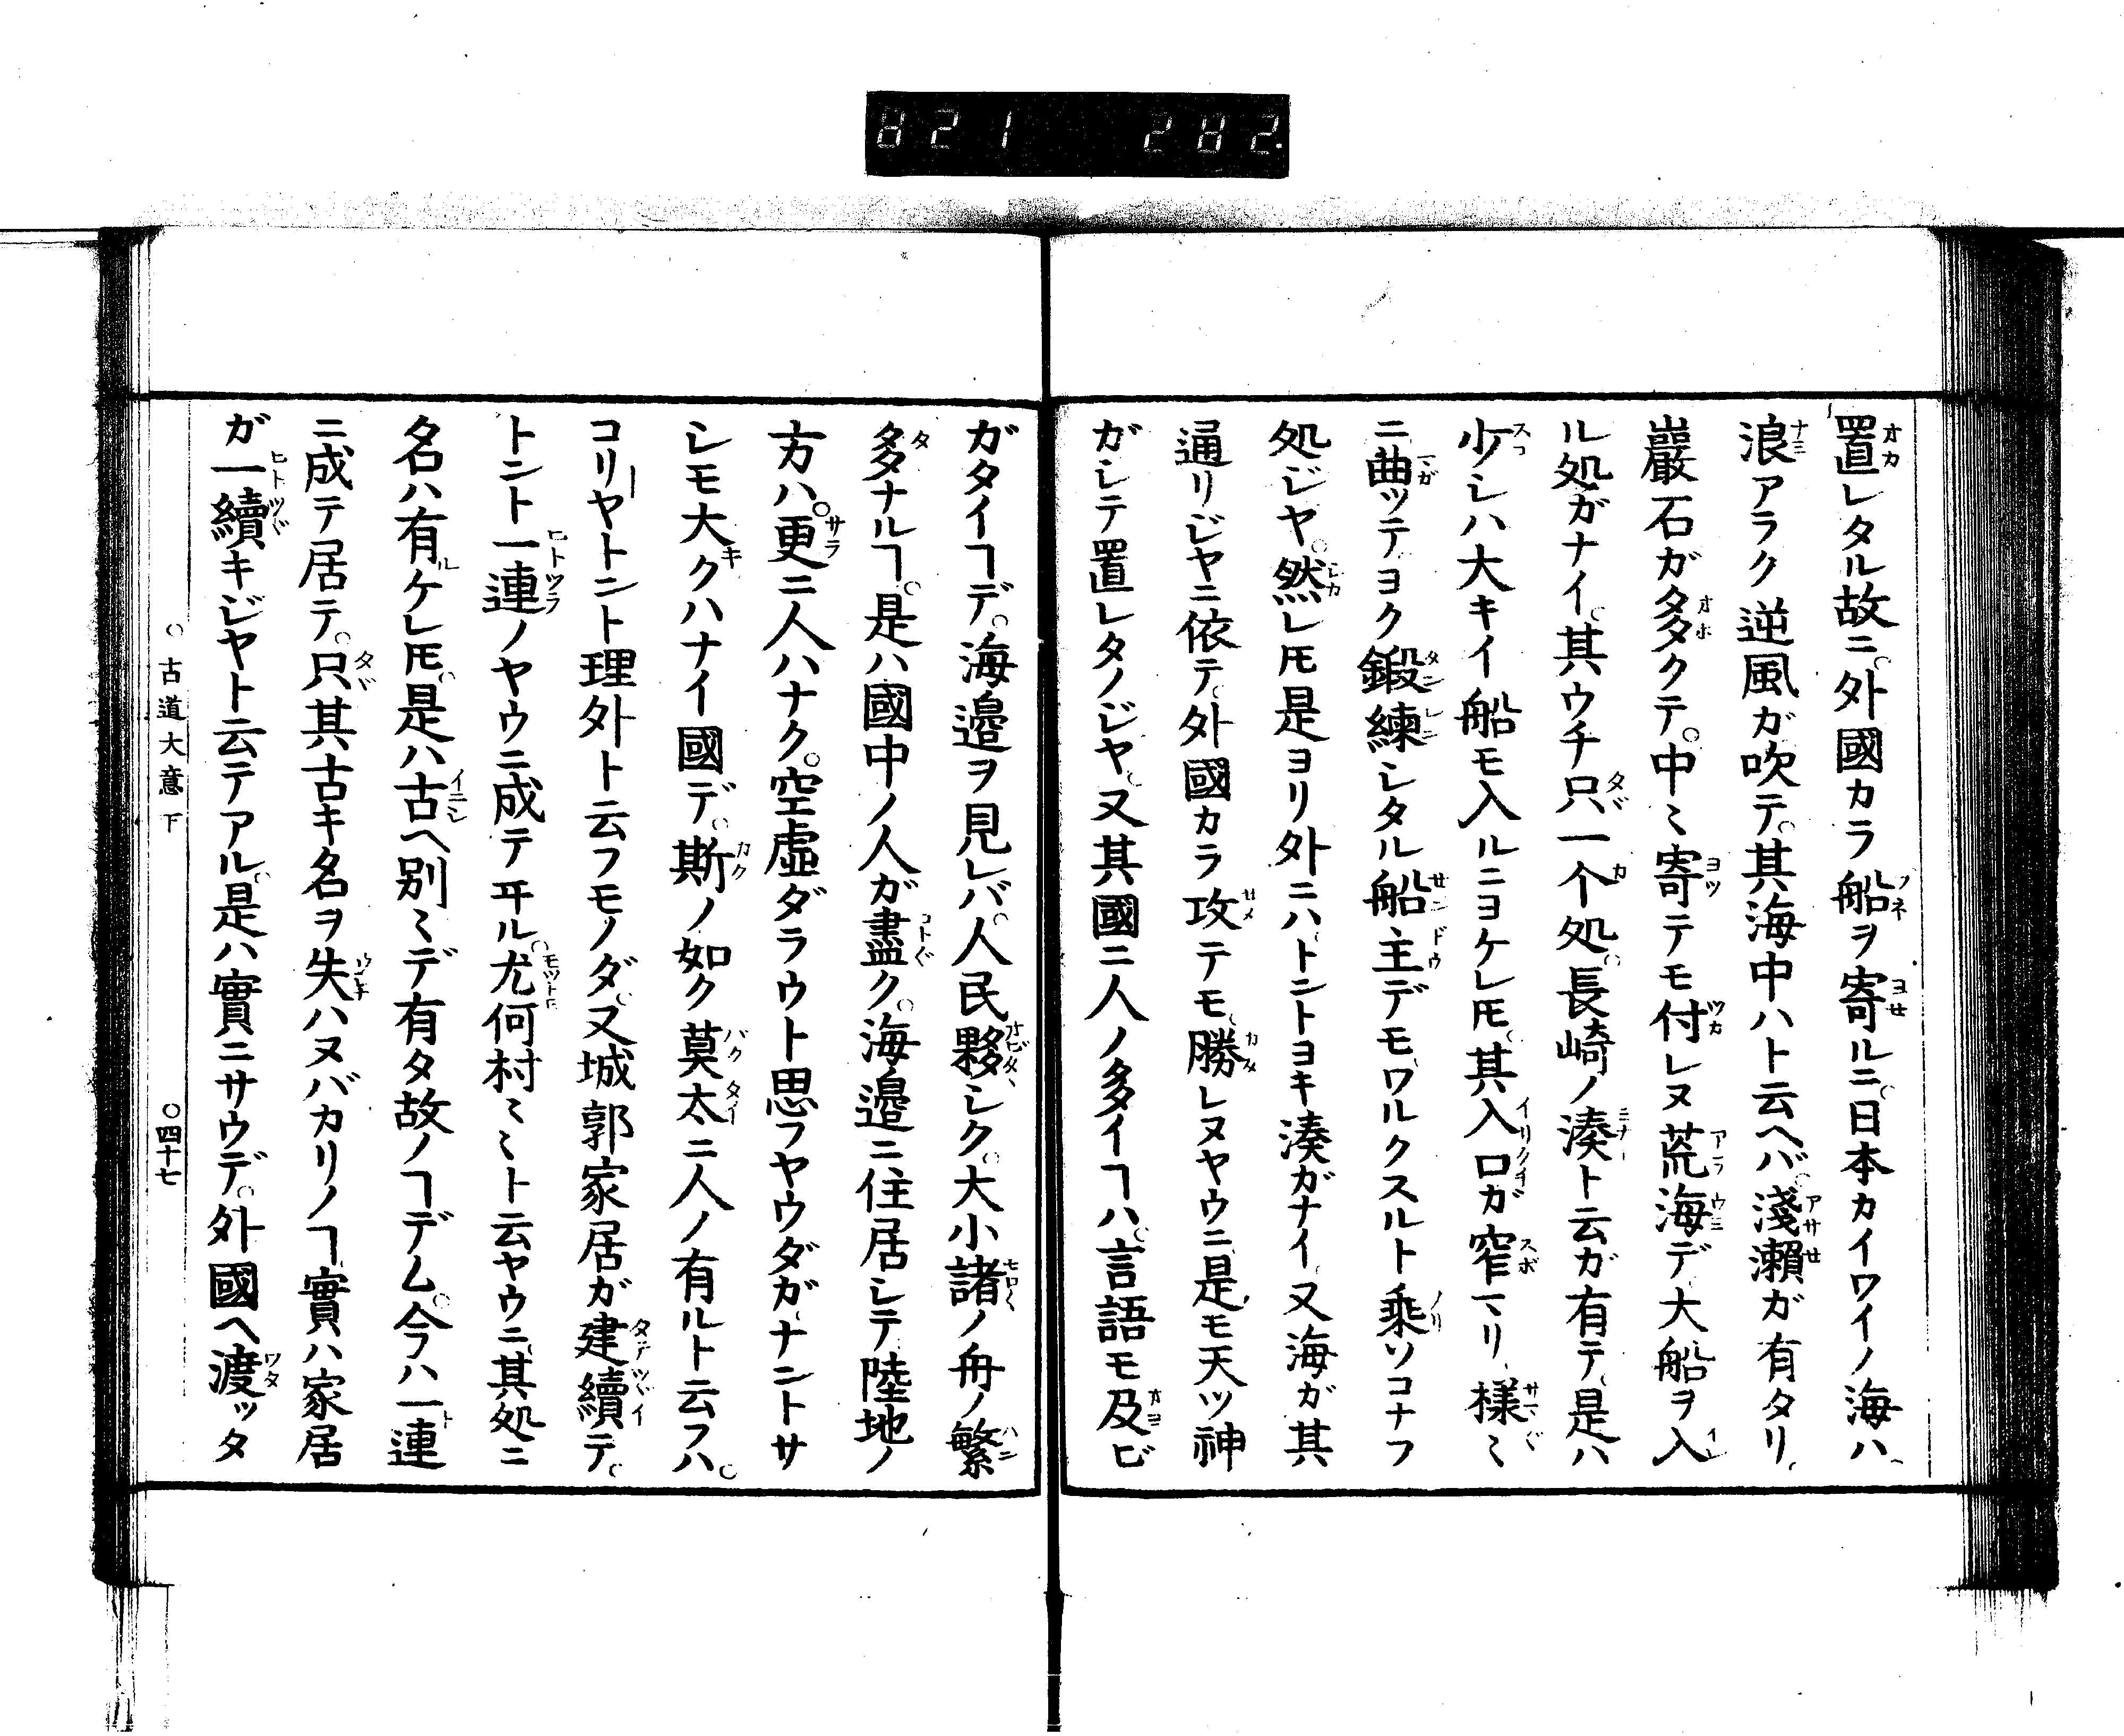 821 282.
置レタル故ニ。外國カラ船ヲ寄ルニ。日本カイワイノ海ハ、
浪アラク逆風ガ吹テ。其海中ハト云ヘバ。淺瀬ガ有タリ、
巖石ガ多クテ。中〻寄テモ付レヌ荒海デ、大船ヲ入
ル処ガナイ。其ウチ只一个処。長崎ノ湊ト云ガ有テ、是ハ
少シハ大キイ船モ入ルニヨケレ𪜈。其入口ガ窄マリ、様〻
ニ曲ツテヨク鍛練シタル船主デモ、ワルクスルト乗ソコナフ
処ジヤ。然レ𪜈是ヨリ外ニハ、トントヨキ湊ガナイ、又海ガ其
通リジヤニ依テ、外國カラ攻テモ、勝レヌヤウニ是モ天ツ神
ガシテ置レタノジヤ。又其國ニ人ノ多イヿハ。言語モ及ビ
ガタイヿデ。海邉ヲ見レバ。人民夥シク。大小諸ノ舟ノ繁
多ナルヿ。是ハ國中ノ人ガ盡ク。海邉ニ住居シテ、陸地ノ
方ハ。更ニ人ハナク。空虚ダラウト思フヤウダガ、ナントサ
シモ大クハナイ國デ。斯ノ如ク莫太ニ人ノ有ルト云フハ。
コリヤトント理外ト云フモノダ。又城郭家居ガ建續テ。
トント一連ノヤウニ成テ牙ル。尤何村〻〻ト云ヤウニ、其処ニ
名ハ有ケレ𪜈。是ハ古ヘ別〻デ有タ故ノヿデム。今ハ一連
ニ成テ居テ。只其古キ名ヲ失ハヌバカリノヿ、實ハ家居
ガ一續キジヤト云テアル。是ハ實ニサウデ。外國ヘ渡ツタ
○古道大意下 ○四十七